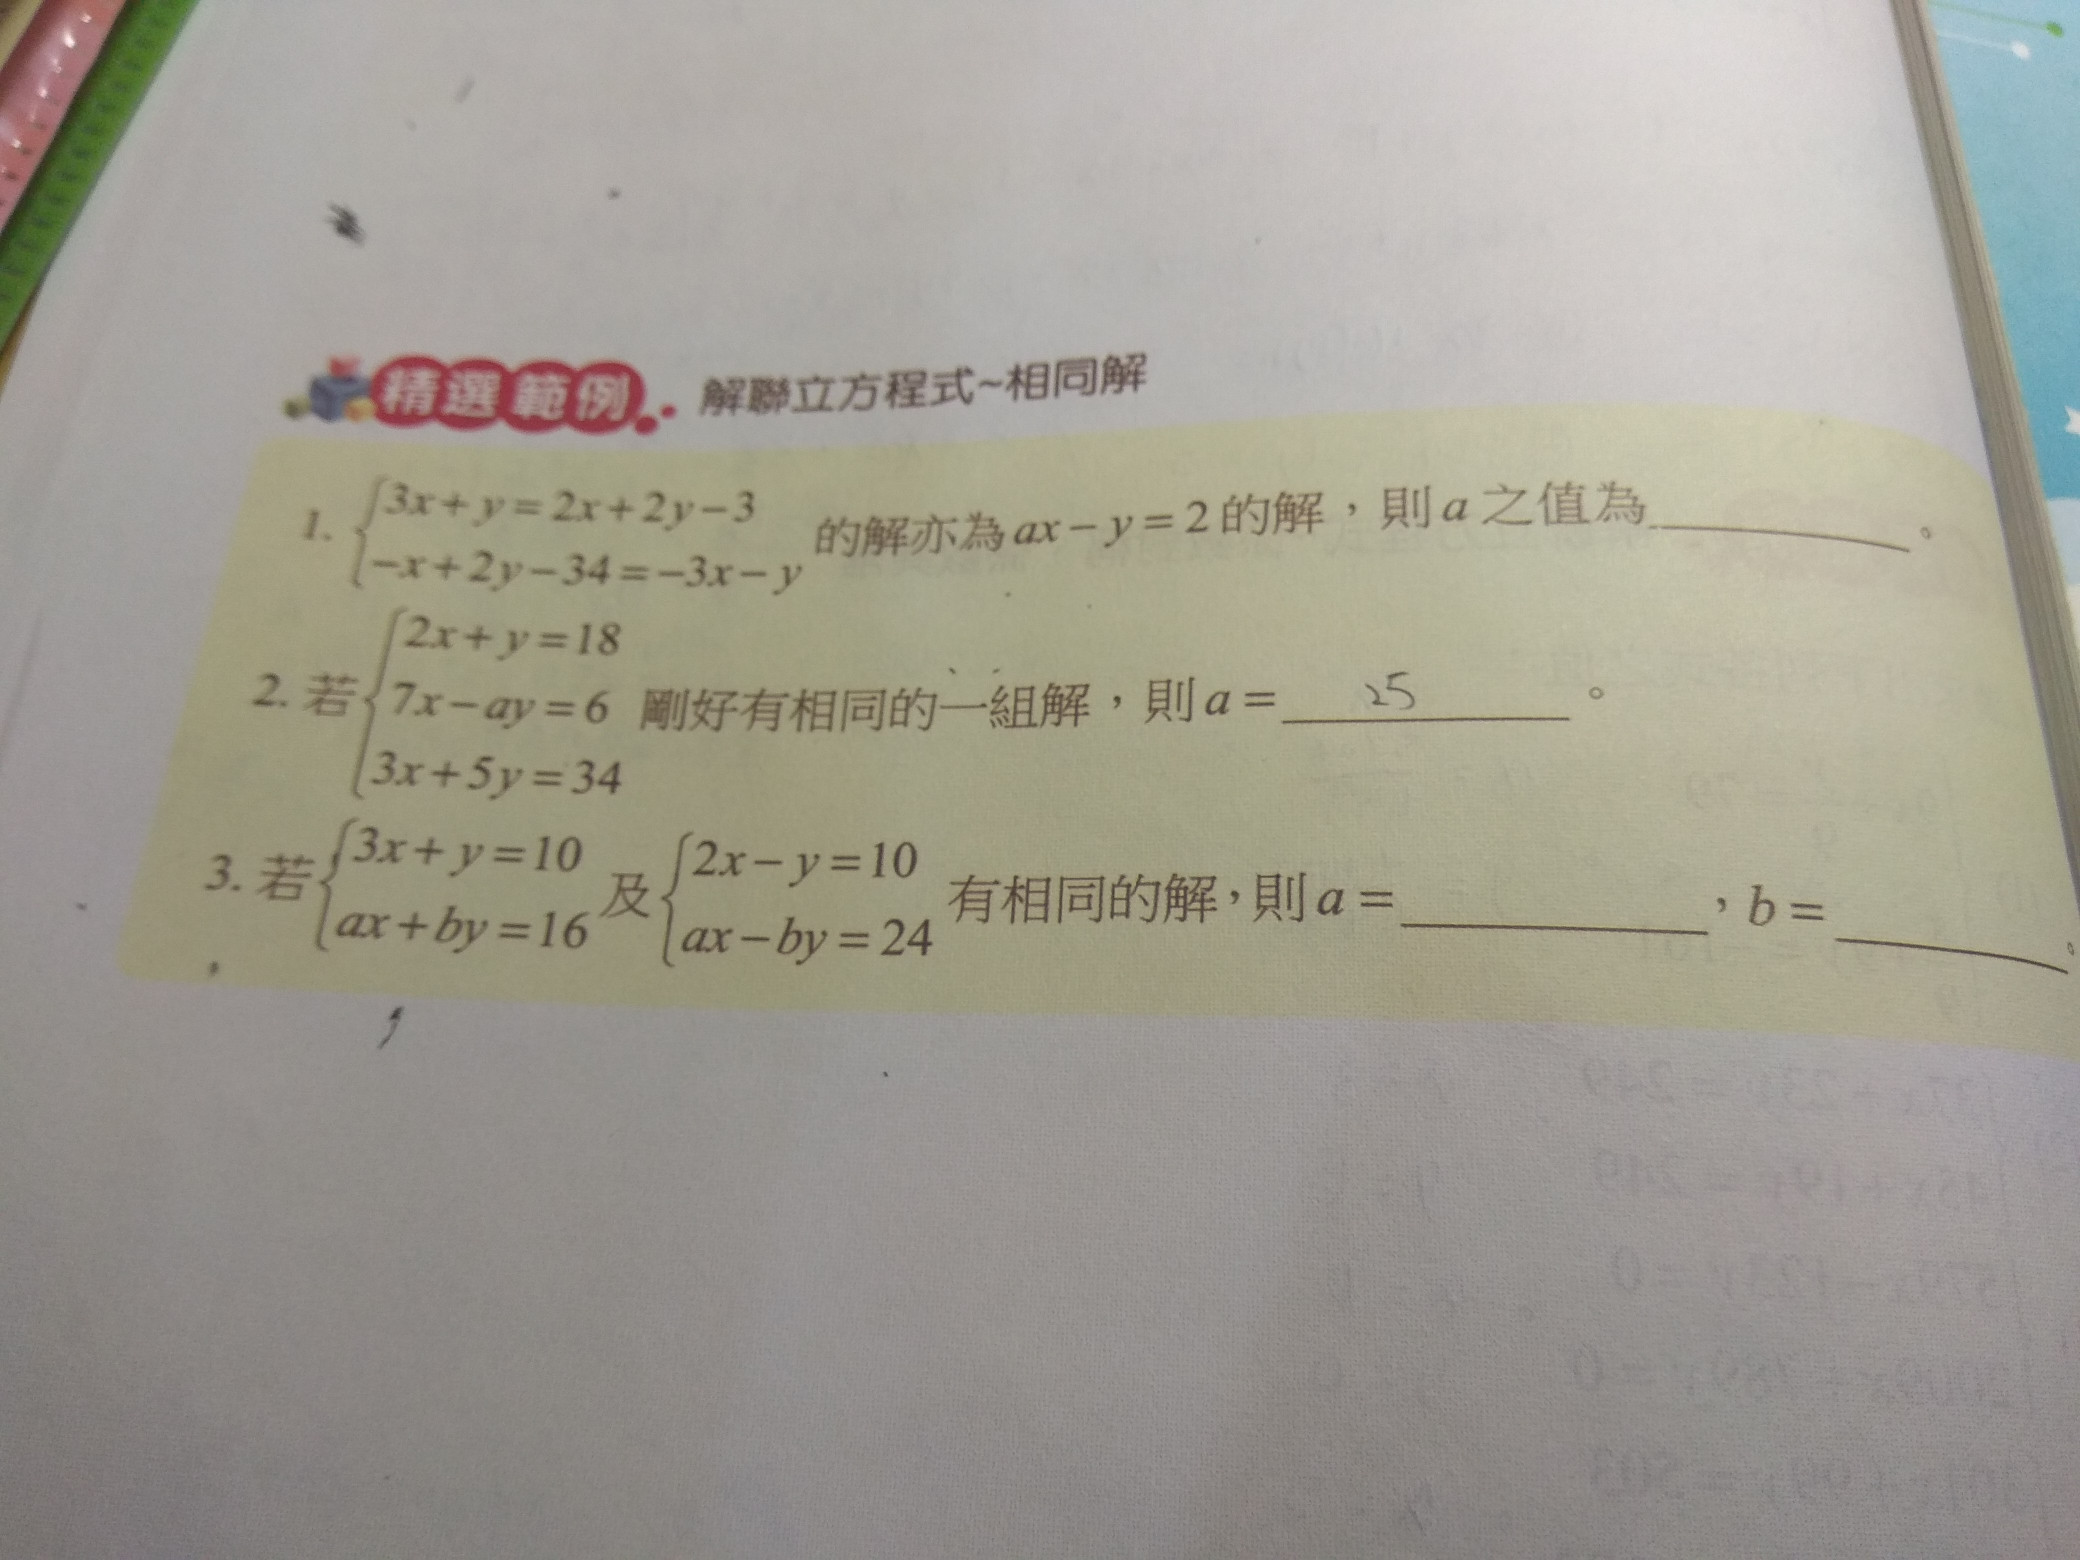 精選範例 解聯立方程式~相同解
1. {3x+y=2x+2y-3
-x+2y-34=-3x-y 的解亦為 ax-y=2 的解，則 a 之值為______。
2. 若 {2x+y=18
7x-ay=6 剛好有相同的一組解，則 a= 25 。
3x+5y=34
3. 若 {3x+y=10
ax+by=16 及 {2x-y=10
ax-by=24 有相同的解，則 a=______，b=______。